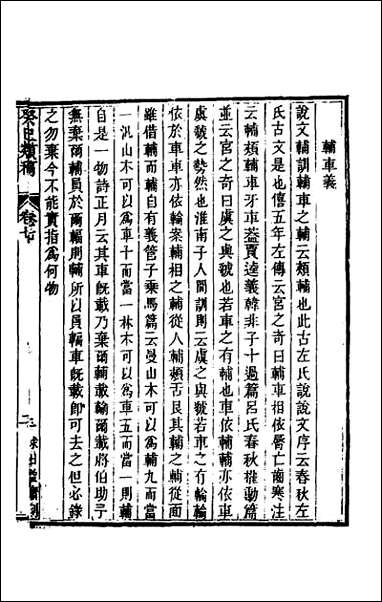 輔車義
說文輔訓輔車之輔云頰輔也此古左氏說說文序云春秋左
氏古文是也僖五年左傳云宮之奇曰輔車相依脣亡齒寒注
云輔頰輔車牙車蓋賈逵義韓非子十過篇呂氏春秋權勳篇
並云宮之奇曰虞之與虢也若車之有輔也車依輔輔亦依車
虞虢之勢然也淮南子人間訓則云虞之與虢若車之有輪輪
依於車車亦依輪案輔相之輔從人輔頰舌艮其輔之輔從面
雖借輔而輔自有義管子乘馬篇云曼山木可以爲輔九而當
一汎山木可以爲車十而當一林木可以爲車五而當一則輔
自是一物詩正月云其車既載乃棄爾輔載輸爾載將伯助予
無棄爾輔員於爾輻則輔所以員輻車既載即可去之但必錄
之勿棄今不能實指爲何物
癸巳類稿
卷七
三
求日益齋刻